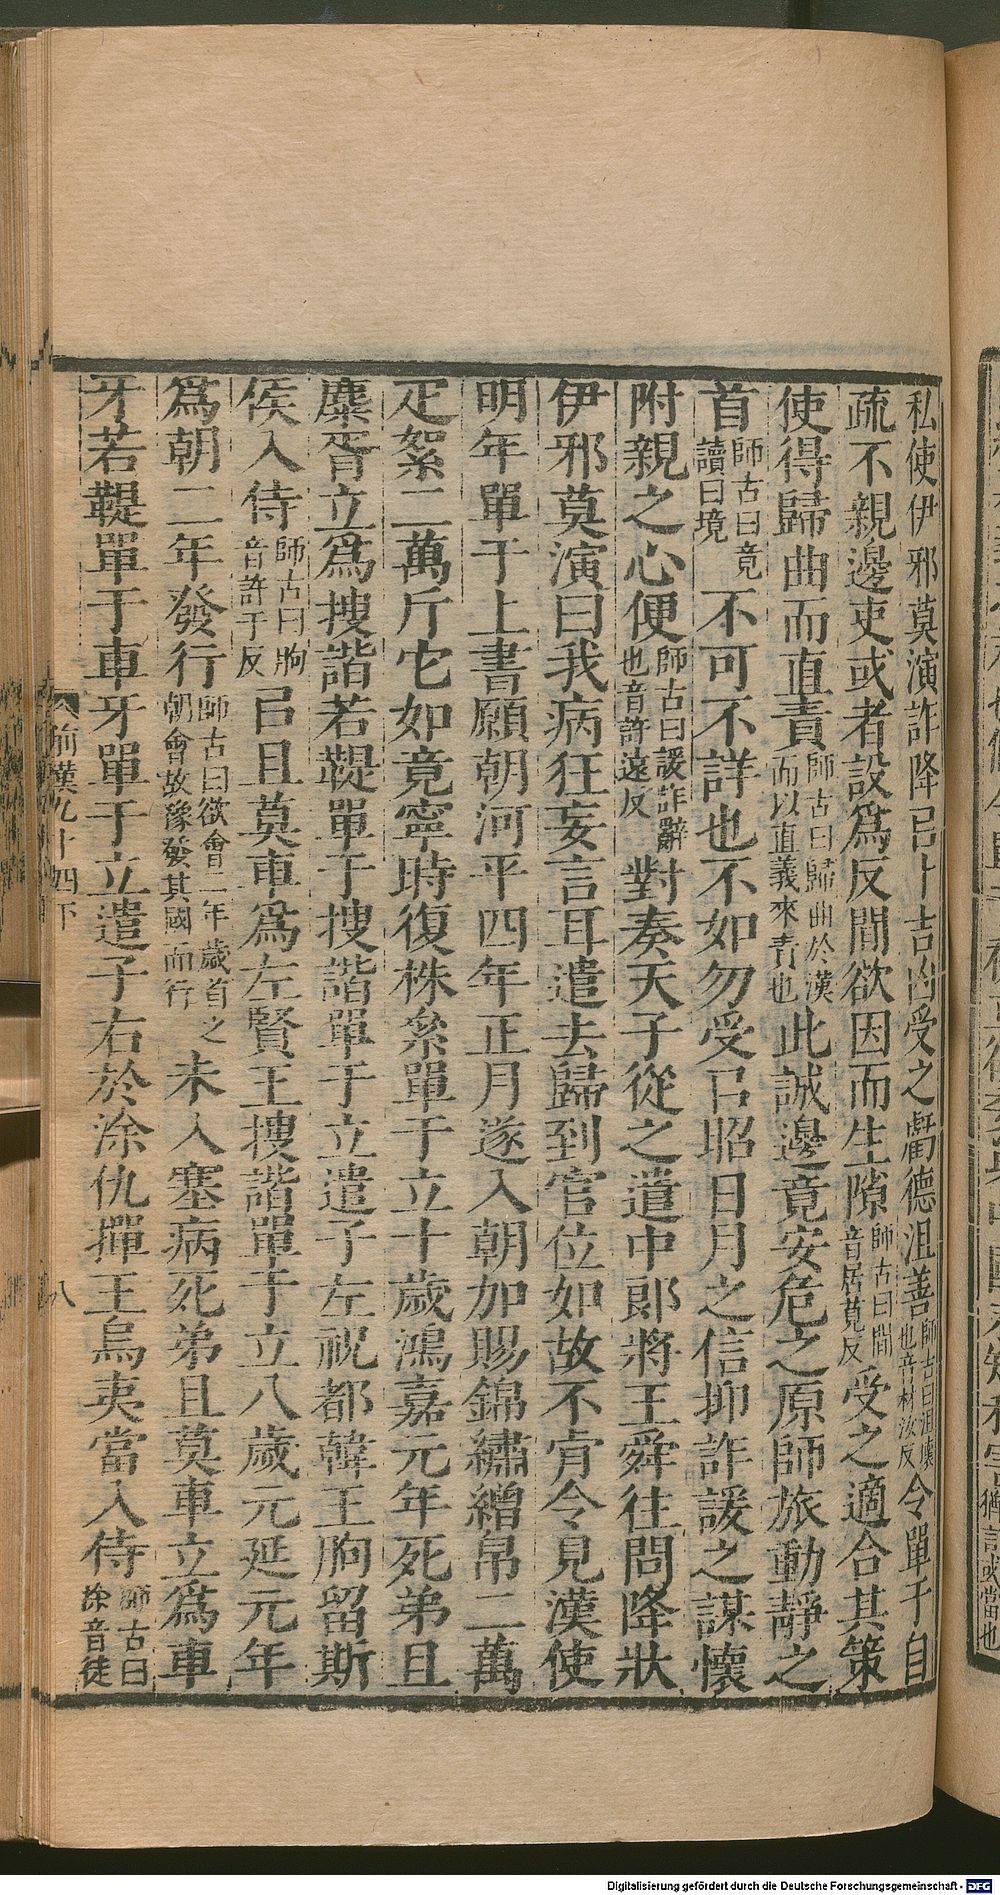 私使伊邪莫演詐降㠯卜吉凶受之虧德沮善師古曰沮壞也音材汝反令單于自
疏不親邊吏或者設爲反間欲因而生隙師古曰間音居莧反受之適合其策
使得歸曲而直責師古曰歸曲於漢而以直義來責也此誠邊竟安危之原師旅動靜之
首師古曰竟讀曰境不可不詳也不如勿受㠯昭日月之信抑詐諼之謀懷
附親之心便師古曰諼詐辭也音許遠反對奏天子從之遣中郎將王舜往問降狀
伊邪莫演曰我病狂妄言耳遣去歸到官位如故不肯令見漢使
明年單于上書願朝河平四年正月遂入朝加賜錦繡繒帛二萬
疋絮二萬斤它如竟寧時復株絫單于立十歲鴻嘉元年死弟且
麋胥立爲搜諧若鞮單于搜諧單于立遣子左祝都韓王朐留斯
侯入侍師古曰朐音許于反㠯且莫車爲左賢王搜諧單于立八歲元延元年
爲朝二年發行師古曰欲會二年歲首之朝會故豫發其國而行未入塞病死弟且莫車立爲車
牙若鞮單于車牙單于立遣子右於涂仇撣王烏夷當入侍師古曰涂音徒
前漢九十四下
八